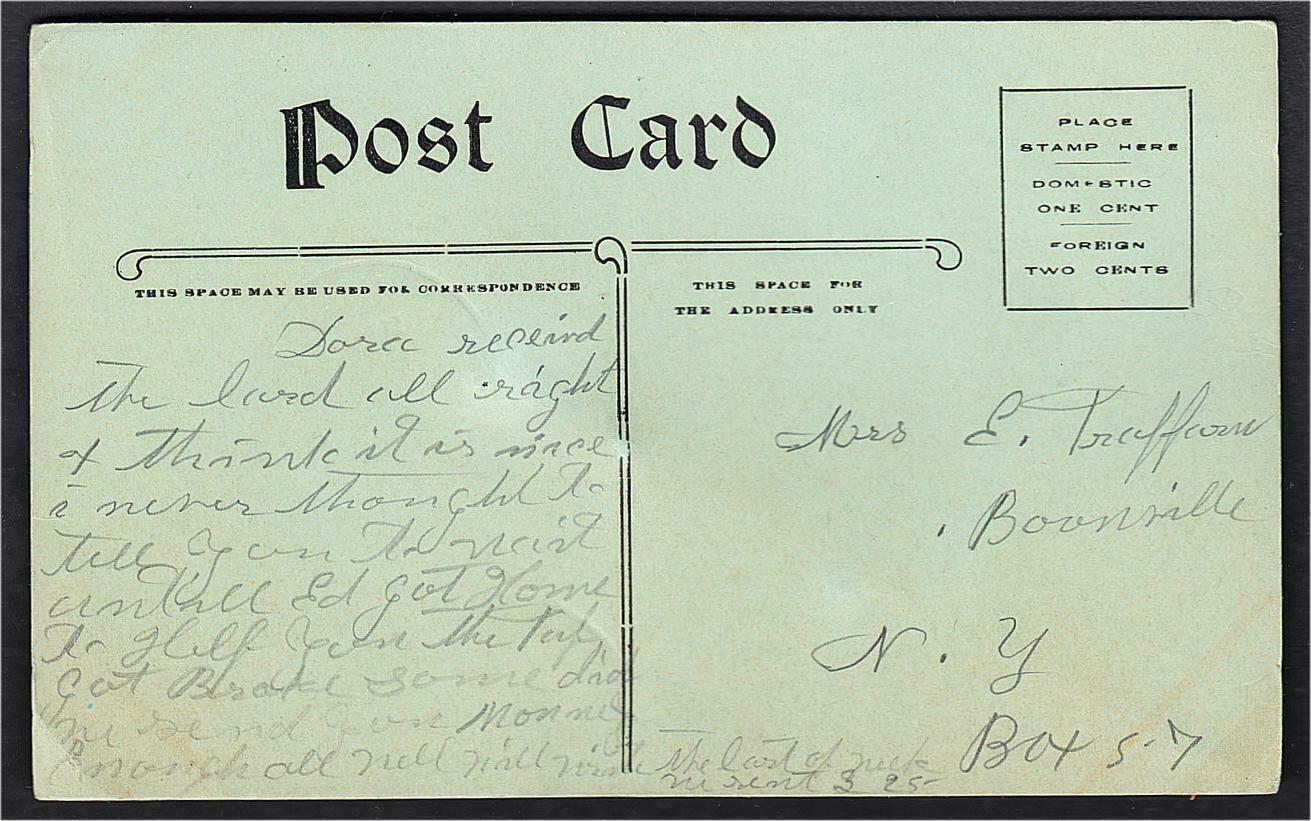 Post Card
PLACE
STAMP HERE
DOMESTIC
ONE CENT
FOREIGN
TWO CENTS
THIS SPACE MAY BE USED FOR CORRESPONDENCE
THIS SPACE FOR
THE ADDRESS ONLY
Dora receivd
the lard all right
& think it is nice
i never thought to
tell you to wait
untill Ed got Home
to Help you the
got Broke some did
we send you Monney
Enough all well will write
the last of week
we sent 3 25
Mrs E. Traffarn
Boonville
N. Y
Box 57